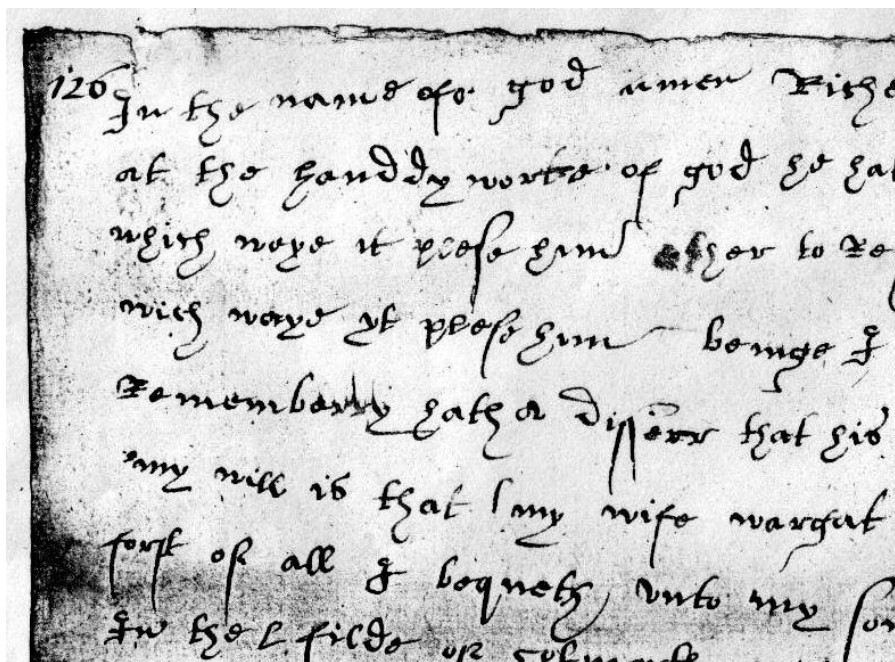 126
In the name of god amen Riche
at the handdy worke of god he hat
which waye it plese him ether to Re
wich waye yt plese him beinge I
Rememberry hath a that his
my will is that my wife margat
forst of all I bequeth vnto my son
In the filde of